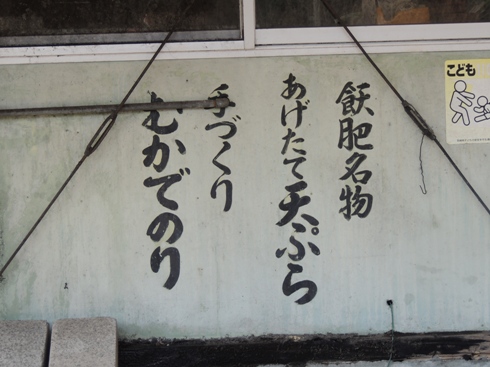 飫肥名物
あげたて天ぷら
手づくり
むかでのり
こども